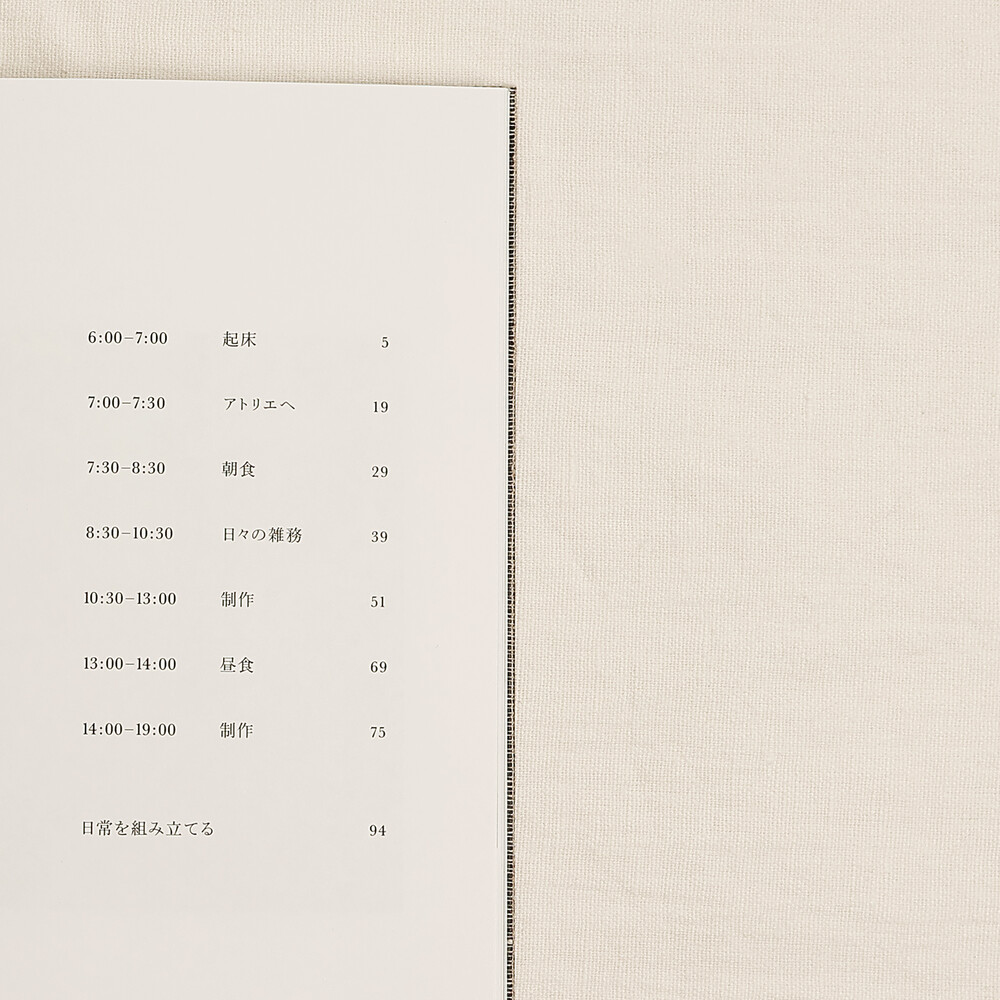 6:00–7:00 起床 5
7:00–7:30 アトリエへ 19
7:30–8:30 朝食 29
8:30–10:30 日々の雑務 39
10:30–13:00 制作 51
13:00–14:00 昼食 69
14:00–19:00 制作 75
日常を組み立てる 94